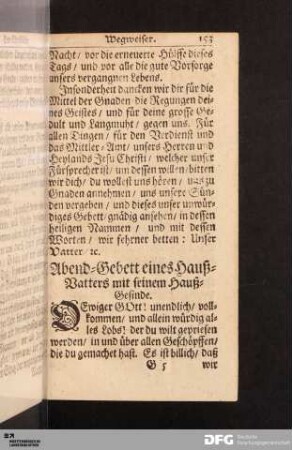 Wegweiser. 153
Nacht/ vor die erneuerte Hülffe dieses
Tags/ und vor alle die gute Vorsorge
unsers vergangnen Lebens.
Insonderheit dancken wir dir für die
Mittel der Gnaden die Regungen dei-
nes Geistes/ und für deine grosse Ge-
dult und Langmuht/ gegen uns. Für
allen Dingen/ für den Verdienst und
das Mittler-Amt/ unsers Herren und
Heylands Jesu Christi/ welcher unser
Fürsprecher ist/ um dessen willen/ bitten
wir dich/ du wollest uns hören/ uns zu
Gnaden annehmen/ uns unsere Sün-
den vergeben/ und dieses unser unwür-
diges Gebett gnädig ansehen/ in dessen
heiligen Nammen/ und mit dessen
Worten/ wir fehrner betten: Unser
Vatter/ ꝛc.
Abend-Gebett eines Hauß-
Vatters mit seinem Hauß-
Gesinde.
O Ewiger GOtt! unendlich/ voll-
kommen/ und allein würdig al-
les Lobs! der du wilt gepriesen
werden/ in und über allen Geschöpffen/
die du gemachet hast. Es ist billich/ daß
G 5 wir
DFG Deutsche
Forschungsgemeinschaft